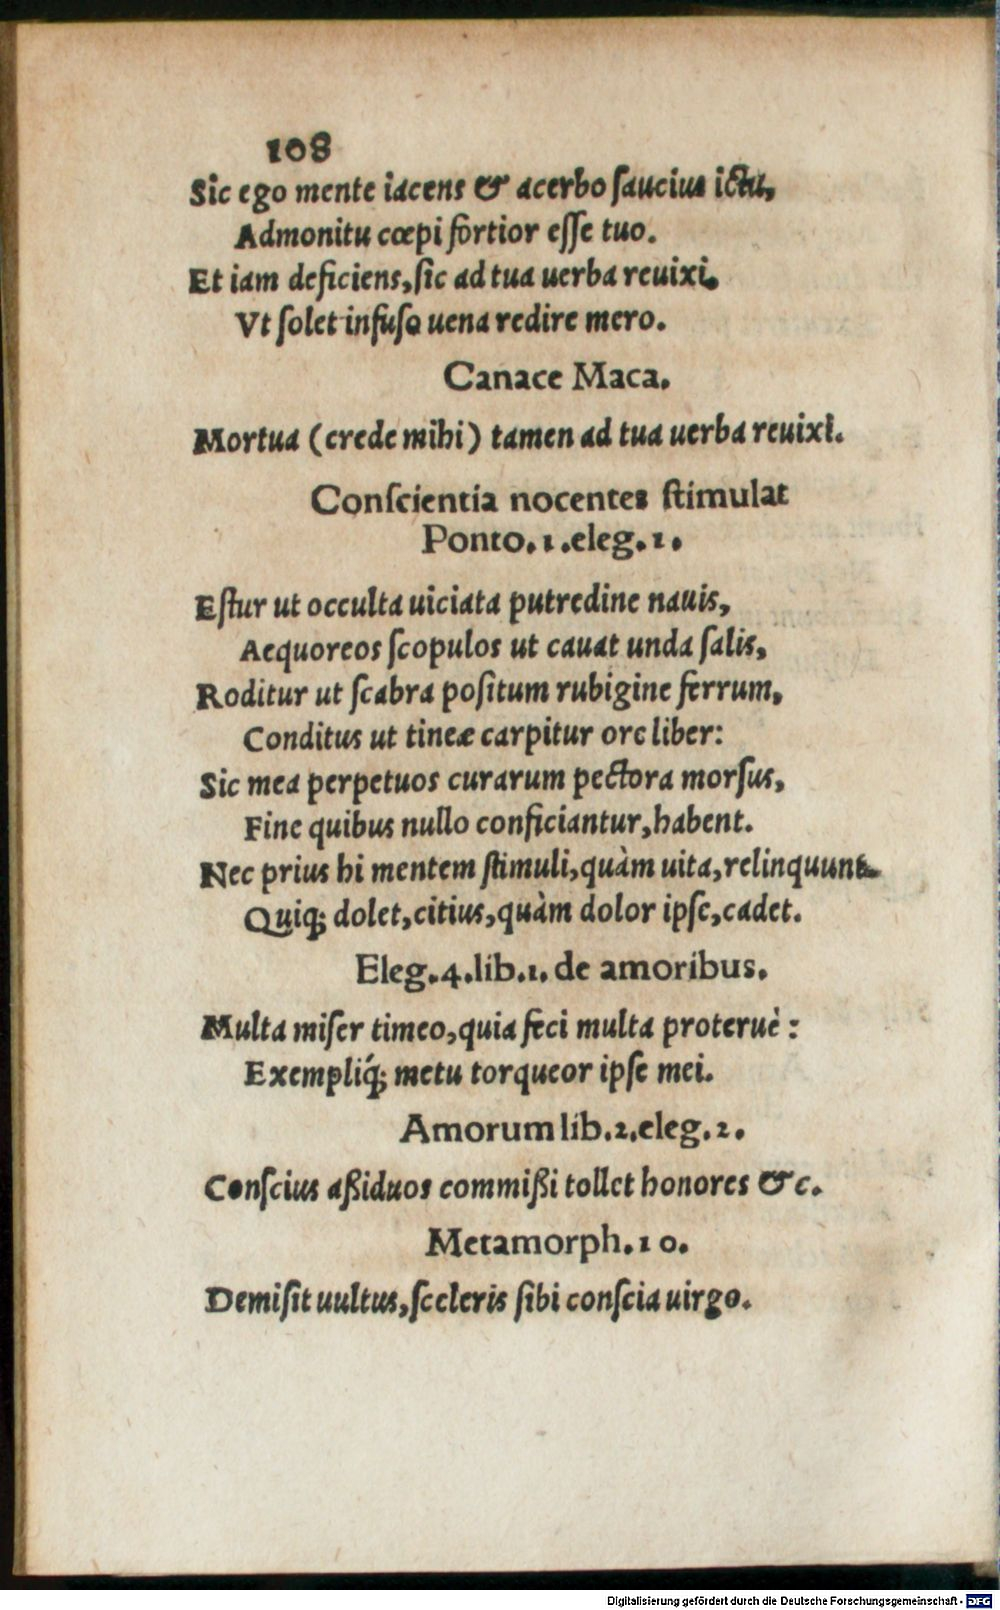 108
Sic ego mente iacens & acerbo ſaucius ictu,
Admonitu cœpi fortior eſſe tuo.
Et iam deficiens, ſic ad tua uerba reuixi,
Vt ſolet infuſo uena redire mero.
Canace Maca.
Mortua (crede mihi) tamen ad tua uerba reuixi.
Conſcientia nocentes ſtimulat
Ponto. 1. eleg. 1.
Eſtur ut occulta uiciata putredine nauis,
Aequoreos ſcopulos ut cauat unda ſalis,
Roditur ut ſcabra poſitum rubigine ferrum,
Conditus ut tineæ carpitur ore liber:
Sic mea perpetuos curarum pectora morſus,
Fine quibus nullo conficiantur, habent.
Nec prius hi mentem ſtimuli, quàm uita, relinquunt
Quiq; dolet, citius, quàm dolor ipſe, cadet.
Eleg. 4. lib. 1. de amoribus.
Multa miſer timeo, quia feci multa proteruè:
Exempliq́; metu torqueor ipſe mei.
Amorum lib. 2. eleg. 2.
Conſcius aßiduos commißi tollet honores &c.
Metamorph. 10.
Demiſit uultus, ſceleris ſibi conſcia uirgo.
Digitalisierung gefördert durch die Deutsche Forschungsgemeinschaft - DFG